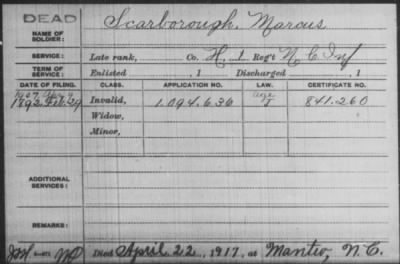 DEAD
NAME OF SOLDIER: Scarborough, Marcus
SERVICE: Late rank, Co. H, 1 Reg't N.C. Inf
TERM OF SERVICE: Enlisted , 1 Discharged , 1
DATE OF FILING. CLASS. APPLICATION NO. LAW. CERTIFICATE NO.
1907 Apr 9 Age
1892 Feb. 29 Invalid, 1.094.636 I 841.260
Widow,
Minor,
ADDITIONAL SERVICES:
REMARKS:
Died April 22, 1917, at Manteo, N.C.